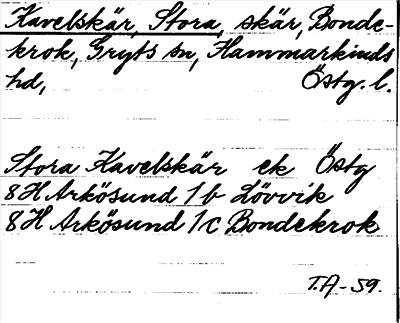 Kavelskär, Stora, skär, Bonde-
krok, Gryts sn, Hammarkinds
hd, Östg. l.
Stora Kavelskär ek Östg
8H Arkösund 1b Lövvik
8H Arkösund 1c Bondekrok
T.A-59.